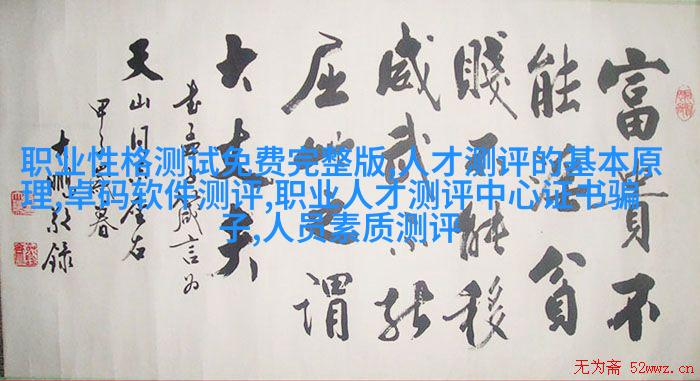 富貴不
能淫貧
賤不能移
威武不能
屈此之謂
大丈夫
書孟子箴言为
天山同
甲暮春
十洲敬録
职业性格测试免费完整版,人才测评的基本原
理,卓码软件测评,职业人才测评中心证书骗
子,人员素质测评
无为斋 52wwz.cn